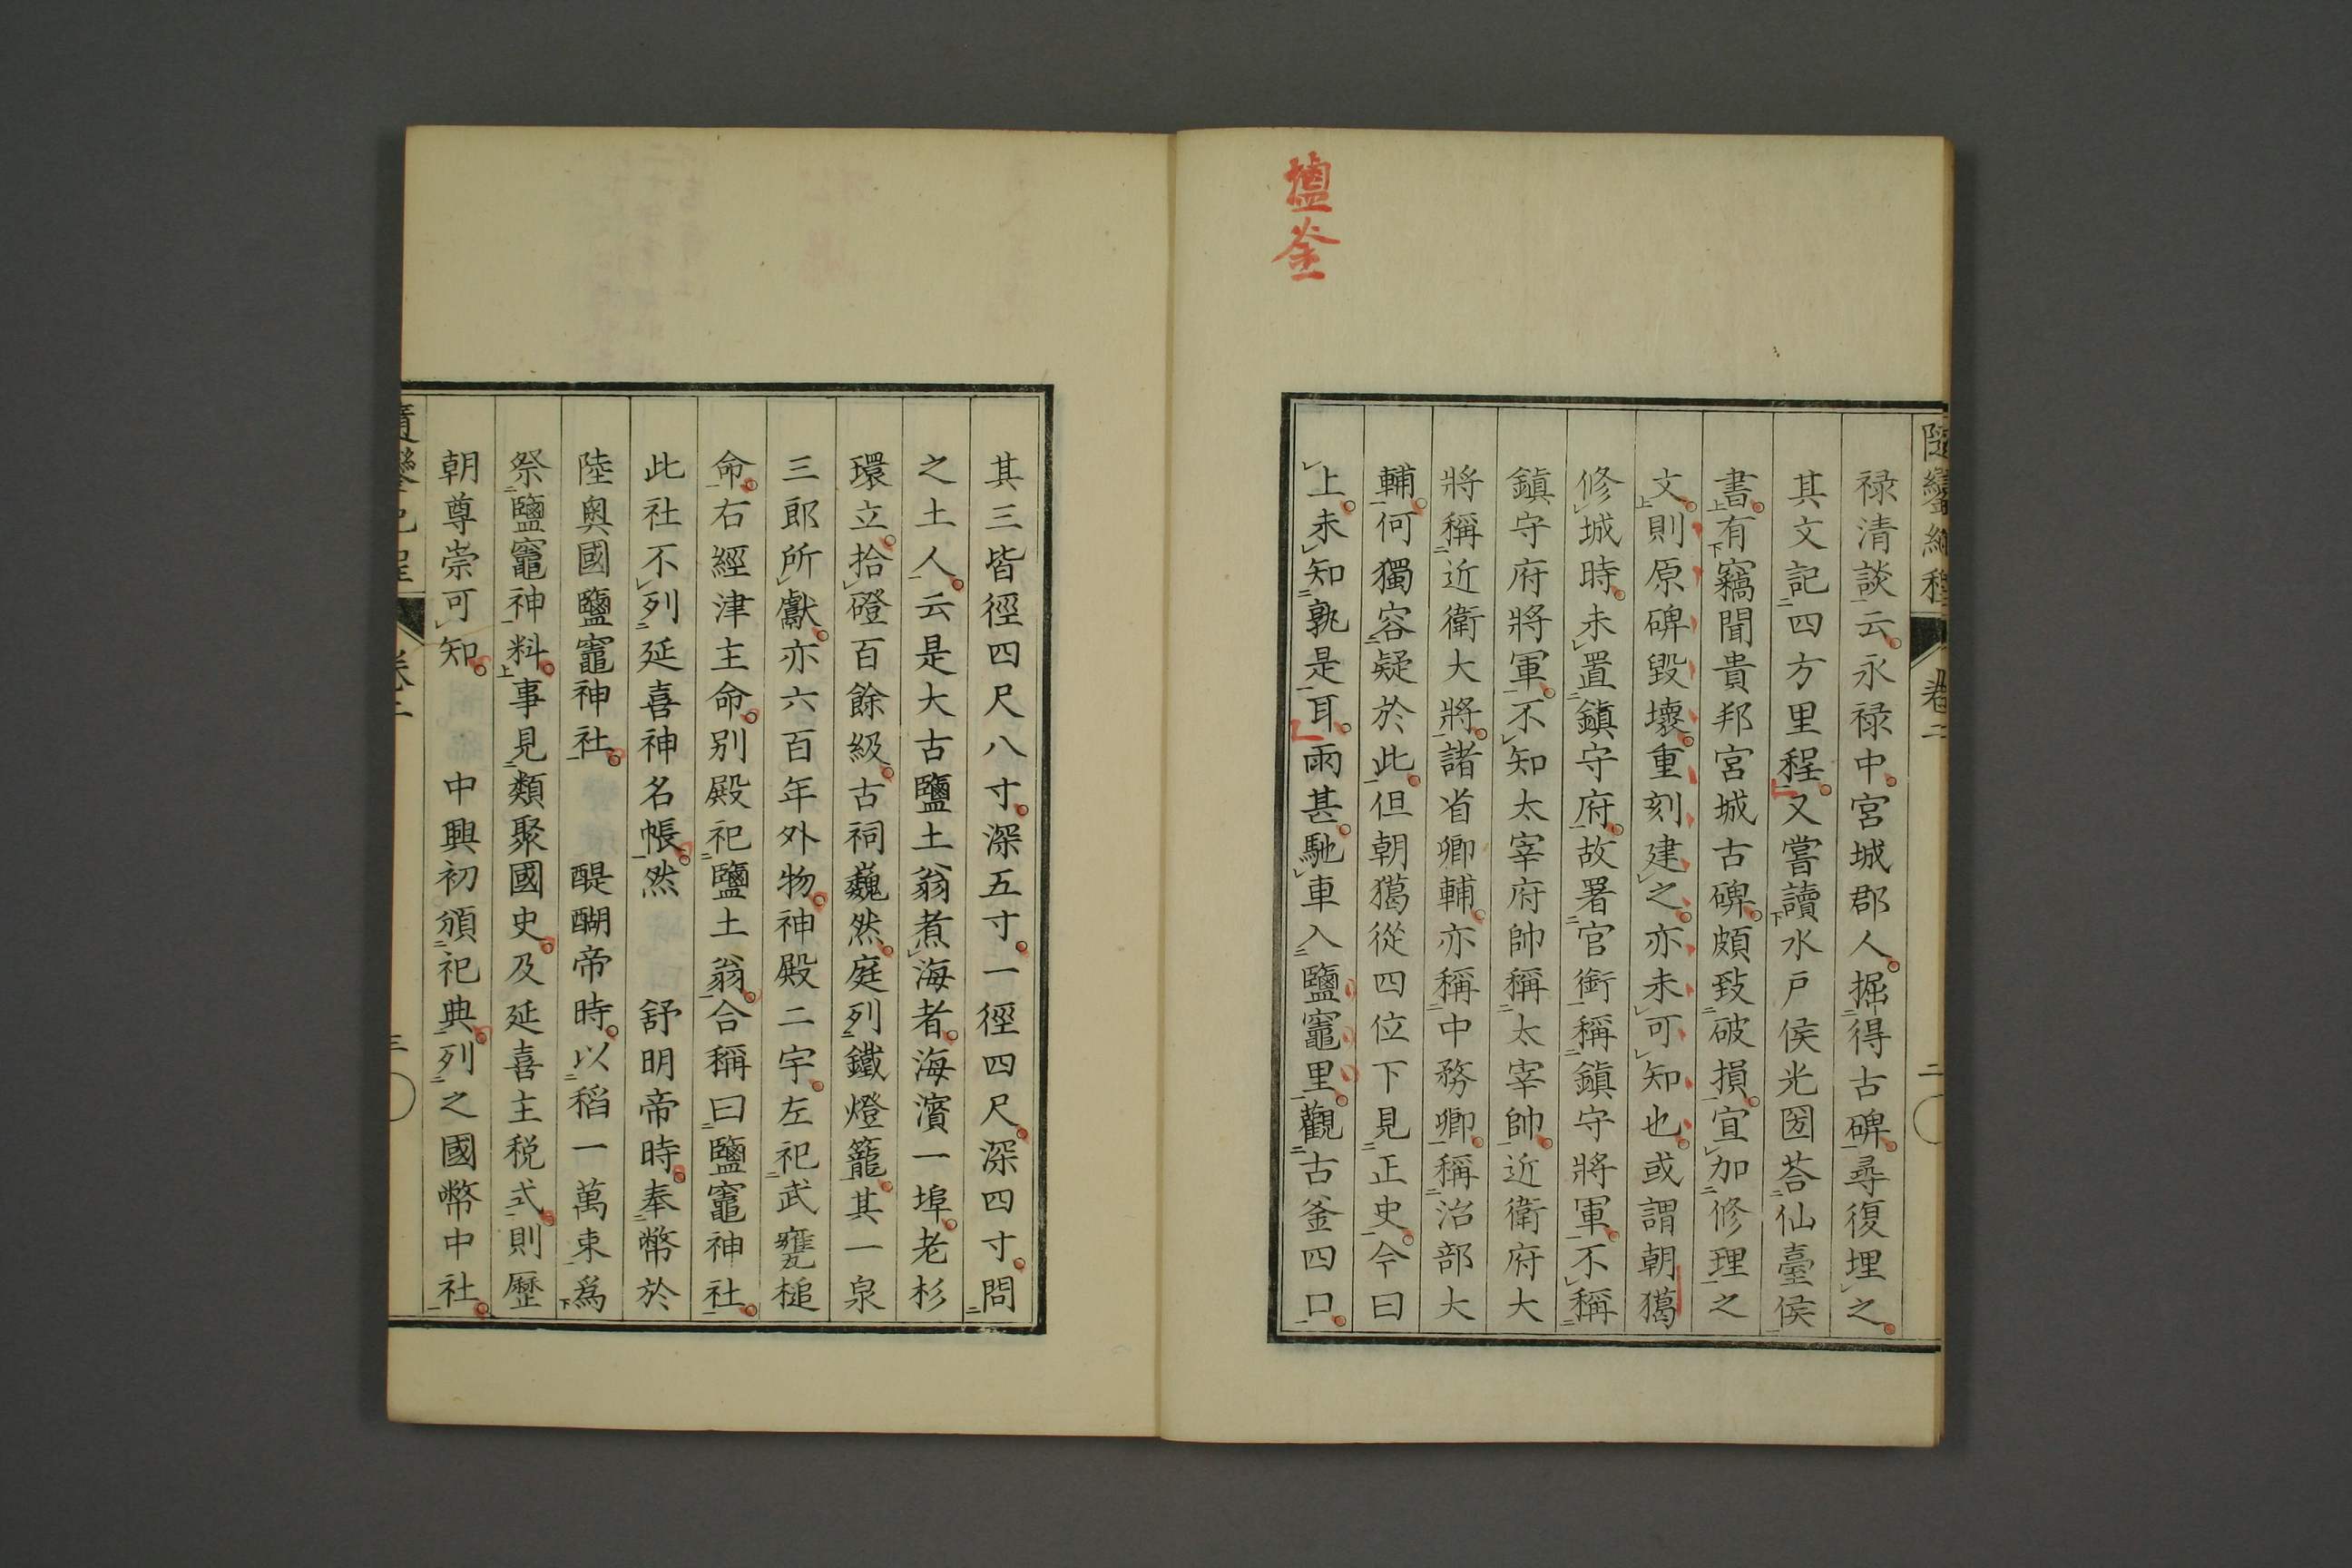 塩釜
隨鑾紀程 卷二 二
禄清談云永禄中宮城郡人掘得古碑尋復埋之
其文記四方里程又嘗讀水戶侯光圀荅仙臺侯
書有竊聞貴邦宮城古碑頗致破損宜加修理之
文則原碑毀壞重刻建之亦未可知也或謂朝獦
修城時未置鎮守府故署官銜稱鎮守將軍不稱
鎮守府將軍不知太宰府帥稱太宰帥近衛府大
將稱近衛大將諸省卿輔亦稱中務卿稱治部大
輔何獨容疑於此但朝獦從四位下見正史今曰
上未知孰是耳雨甚馳車入鹽竈里觀古釜四口
其三皆徑四尺八寸深五寸一徑四尺深四寸問
之土人云是大古鹽土翁煮海者海濱一埠老杉
環立拾磴百餘級古祠巍然庭列鐵燈籠其一泉
三郎所獻亦六百年外物神殿二宇左祀武甕槌
命右經津主命別殿祀鹽土翁合稱曰鹽竈神社
此社不列延喜神名帳然　舒明帝時奉幣於
陸奧國鹽竈神社　醍醐帝時以稻一萬束爲
祭鹽竈神料事見類聚國史及延喜主税式則歷
朝尊崇可知　中興初頒祀典列之國幣中社
卷二 三